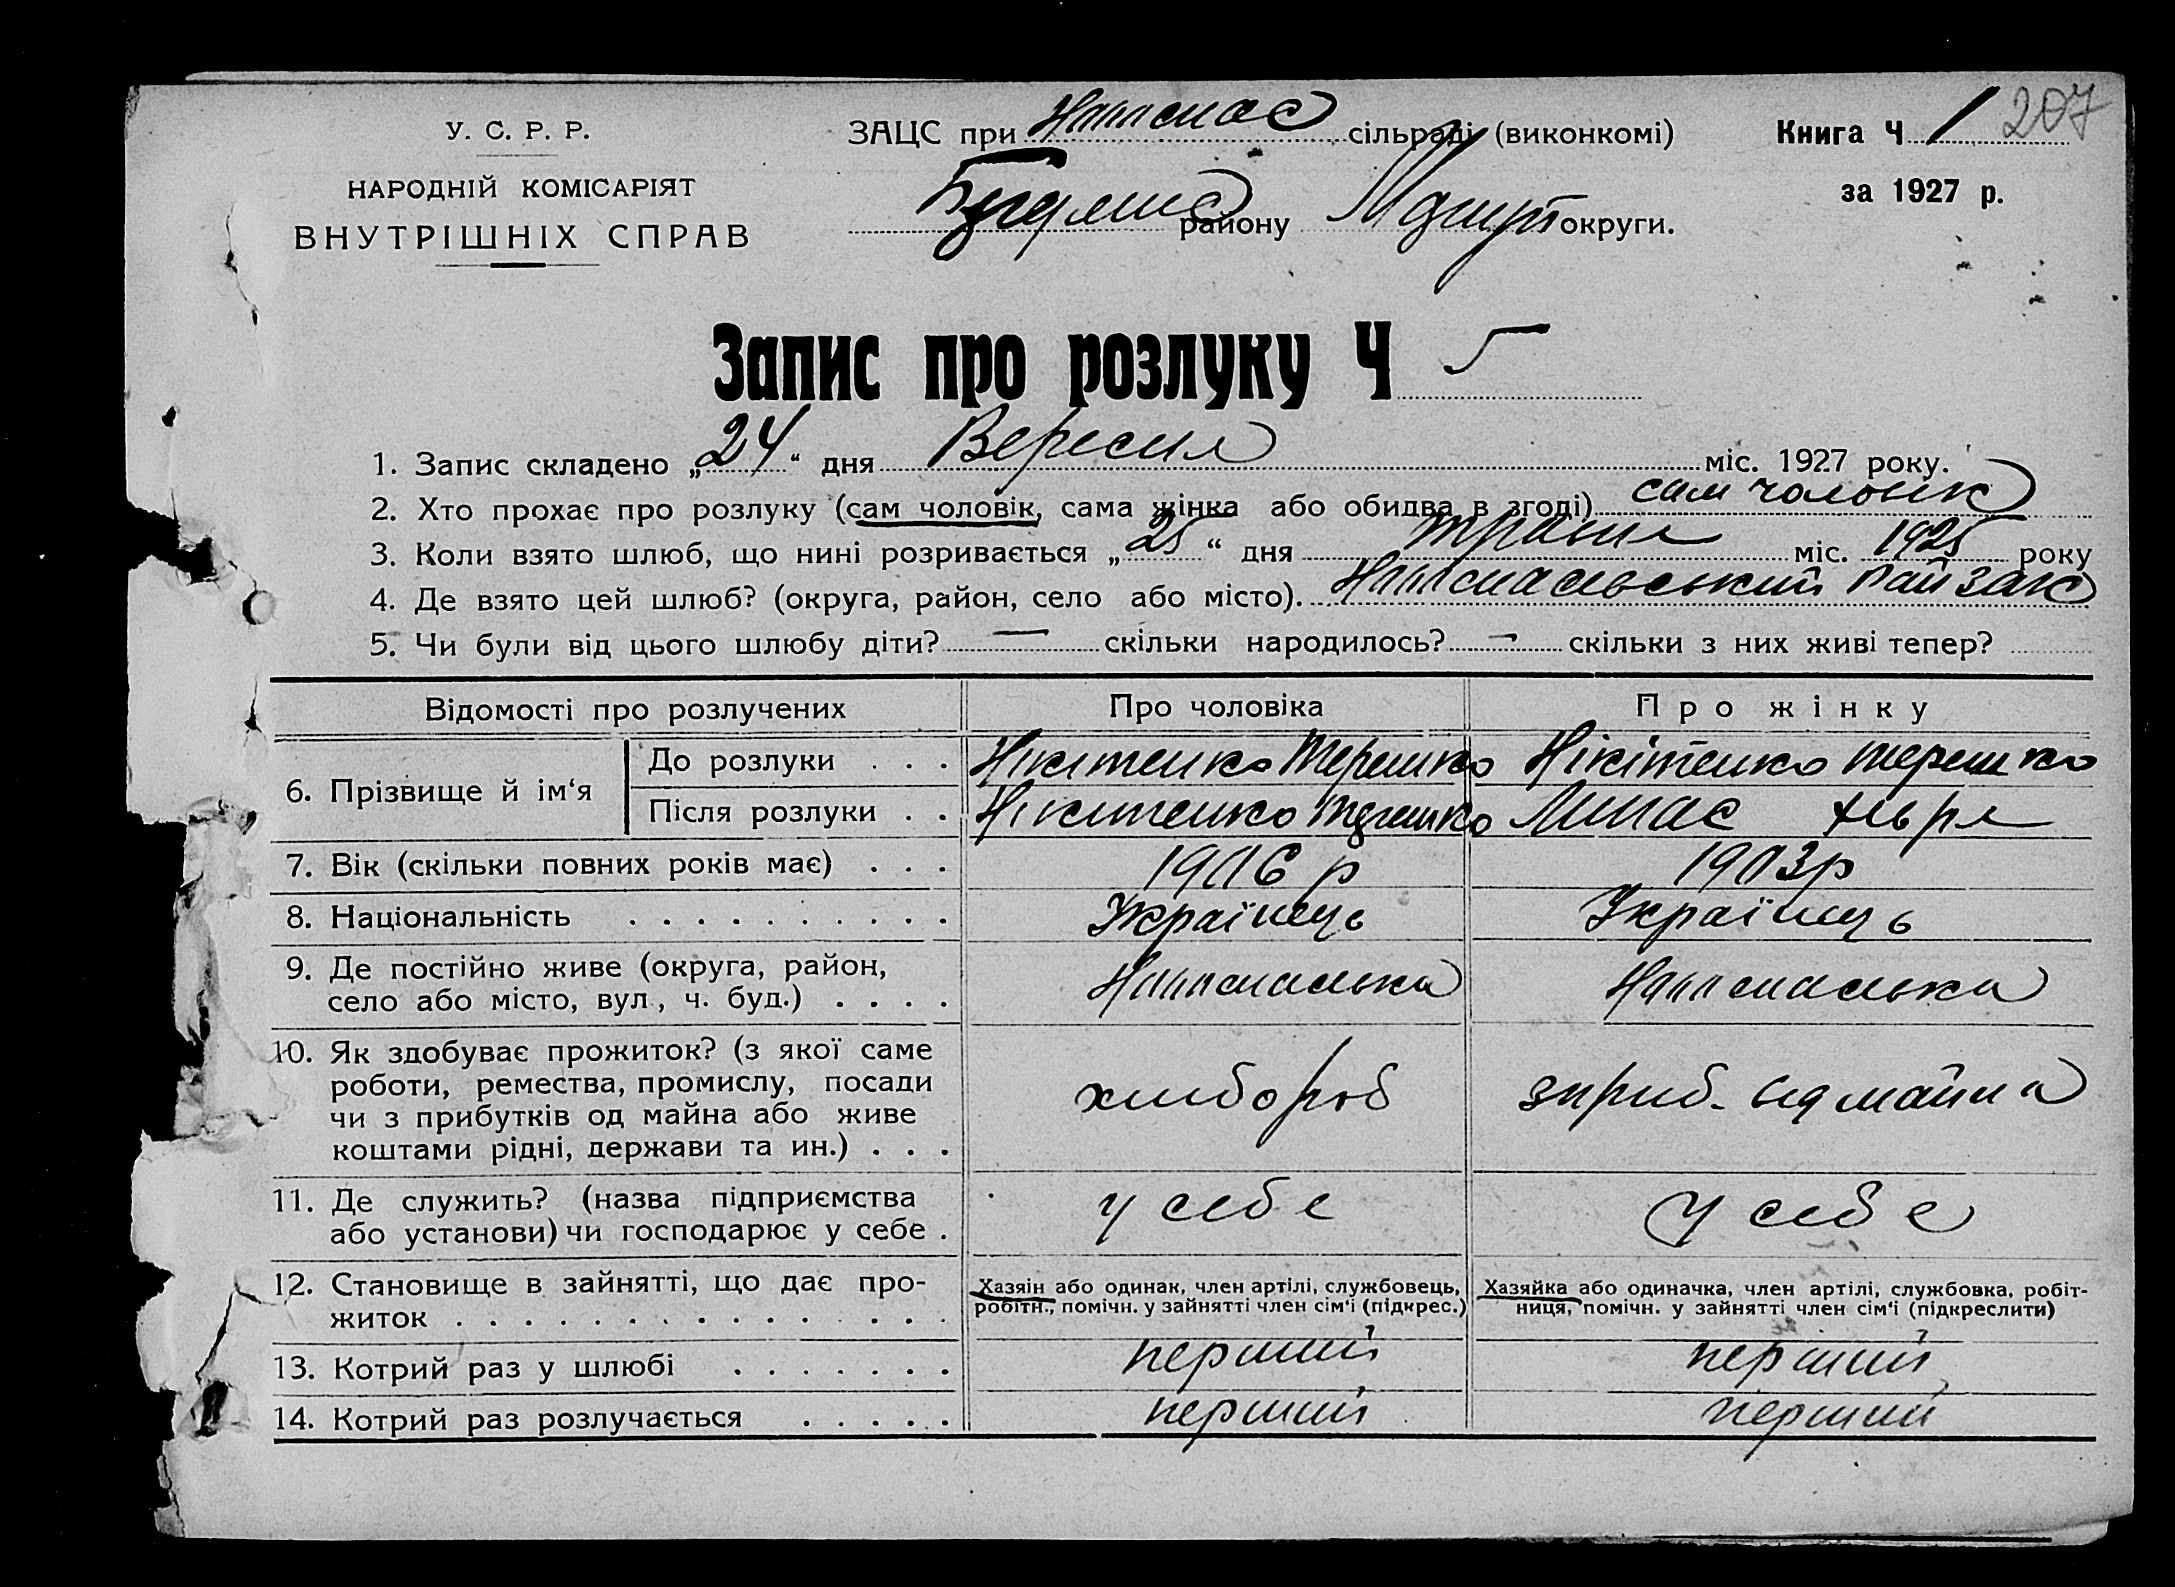 У. С. Р. Р.
НАРОДНІЙ КОМІСАРІЯТ
ВНУТРІШНІХ СПРАВ
ЗАЦС при сільраді (виконкомі)
району округи.
Книга Ч 1 207
за 1927 р.
Запис про розлуку Ч 5
1. Запис складено „24“ дня Вересня міс. 1927 року.
2. Хто прохає про розлуку (сам чоловік, сама жінка або обидва в згоді) сам чоловік
3. Коли взято шлюб, що нині розривається „25“ дня травня міс. 1925 року
4. Де взято цей шлюб? (округа, район, село або місто).
5. Чи були від цього шлюбу діти? — скільки народилось? — скільки з них живі тепер?
Відомості про розлучених Про чоловіка Про жінку
6. Прізвище й ім‘я
До розлуки . . . Нікітенко Терешко Нікітенко Терешко
Після розлуки . . Нікітенко Терешко Минас
7. Вік (скільки повних років має) . . . 1906 р 1903 р
8. Національність . . . . . . . . . . Українець Українець
9. Де постійно живе (округа, район,
село або місто, вул., ч. буд.) . . . .
10. Як здобуває прожиток? (з якої саме
роботи, ремества, промислу, посади
чи з прибутків од майна або живе
коштами рідні, держави та ин.) . . . хлибороб
11. Де служить? (назва підприємства
або установи) чи господарює у себе . у себе у себе
12. Становище в зайнятті, що дає про-
житок . . . . . . . . . . . . . . .
Хазяін або одинак, член артілі, службовець,
робітн., помічн. у зайнятті член сім‘і (підкрес.)
Хазяйка або одиначка, член артілі, службовка, робіт-
ниця, помічн. у зайнятті член сім‘і (підкреслити)
13. Котрий раз у шлюбі . . . . . . . перший перший
14. Котрий раз розлучається . . . . . перший перший